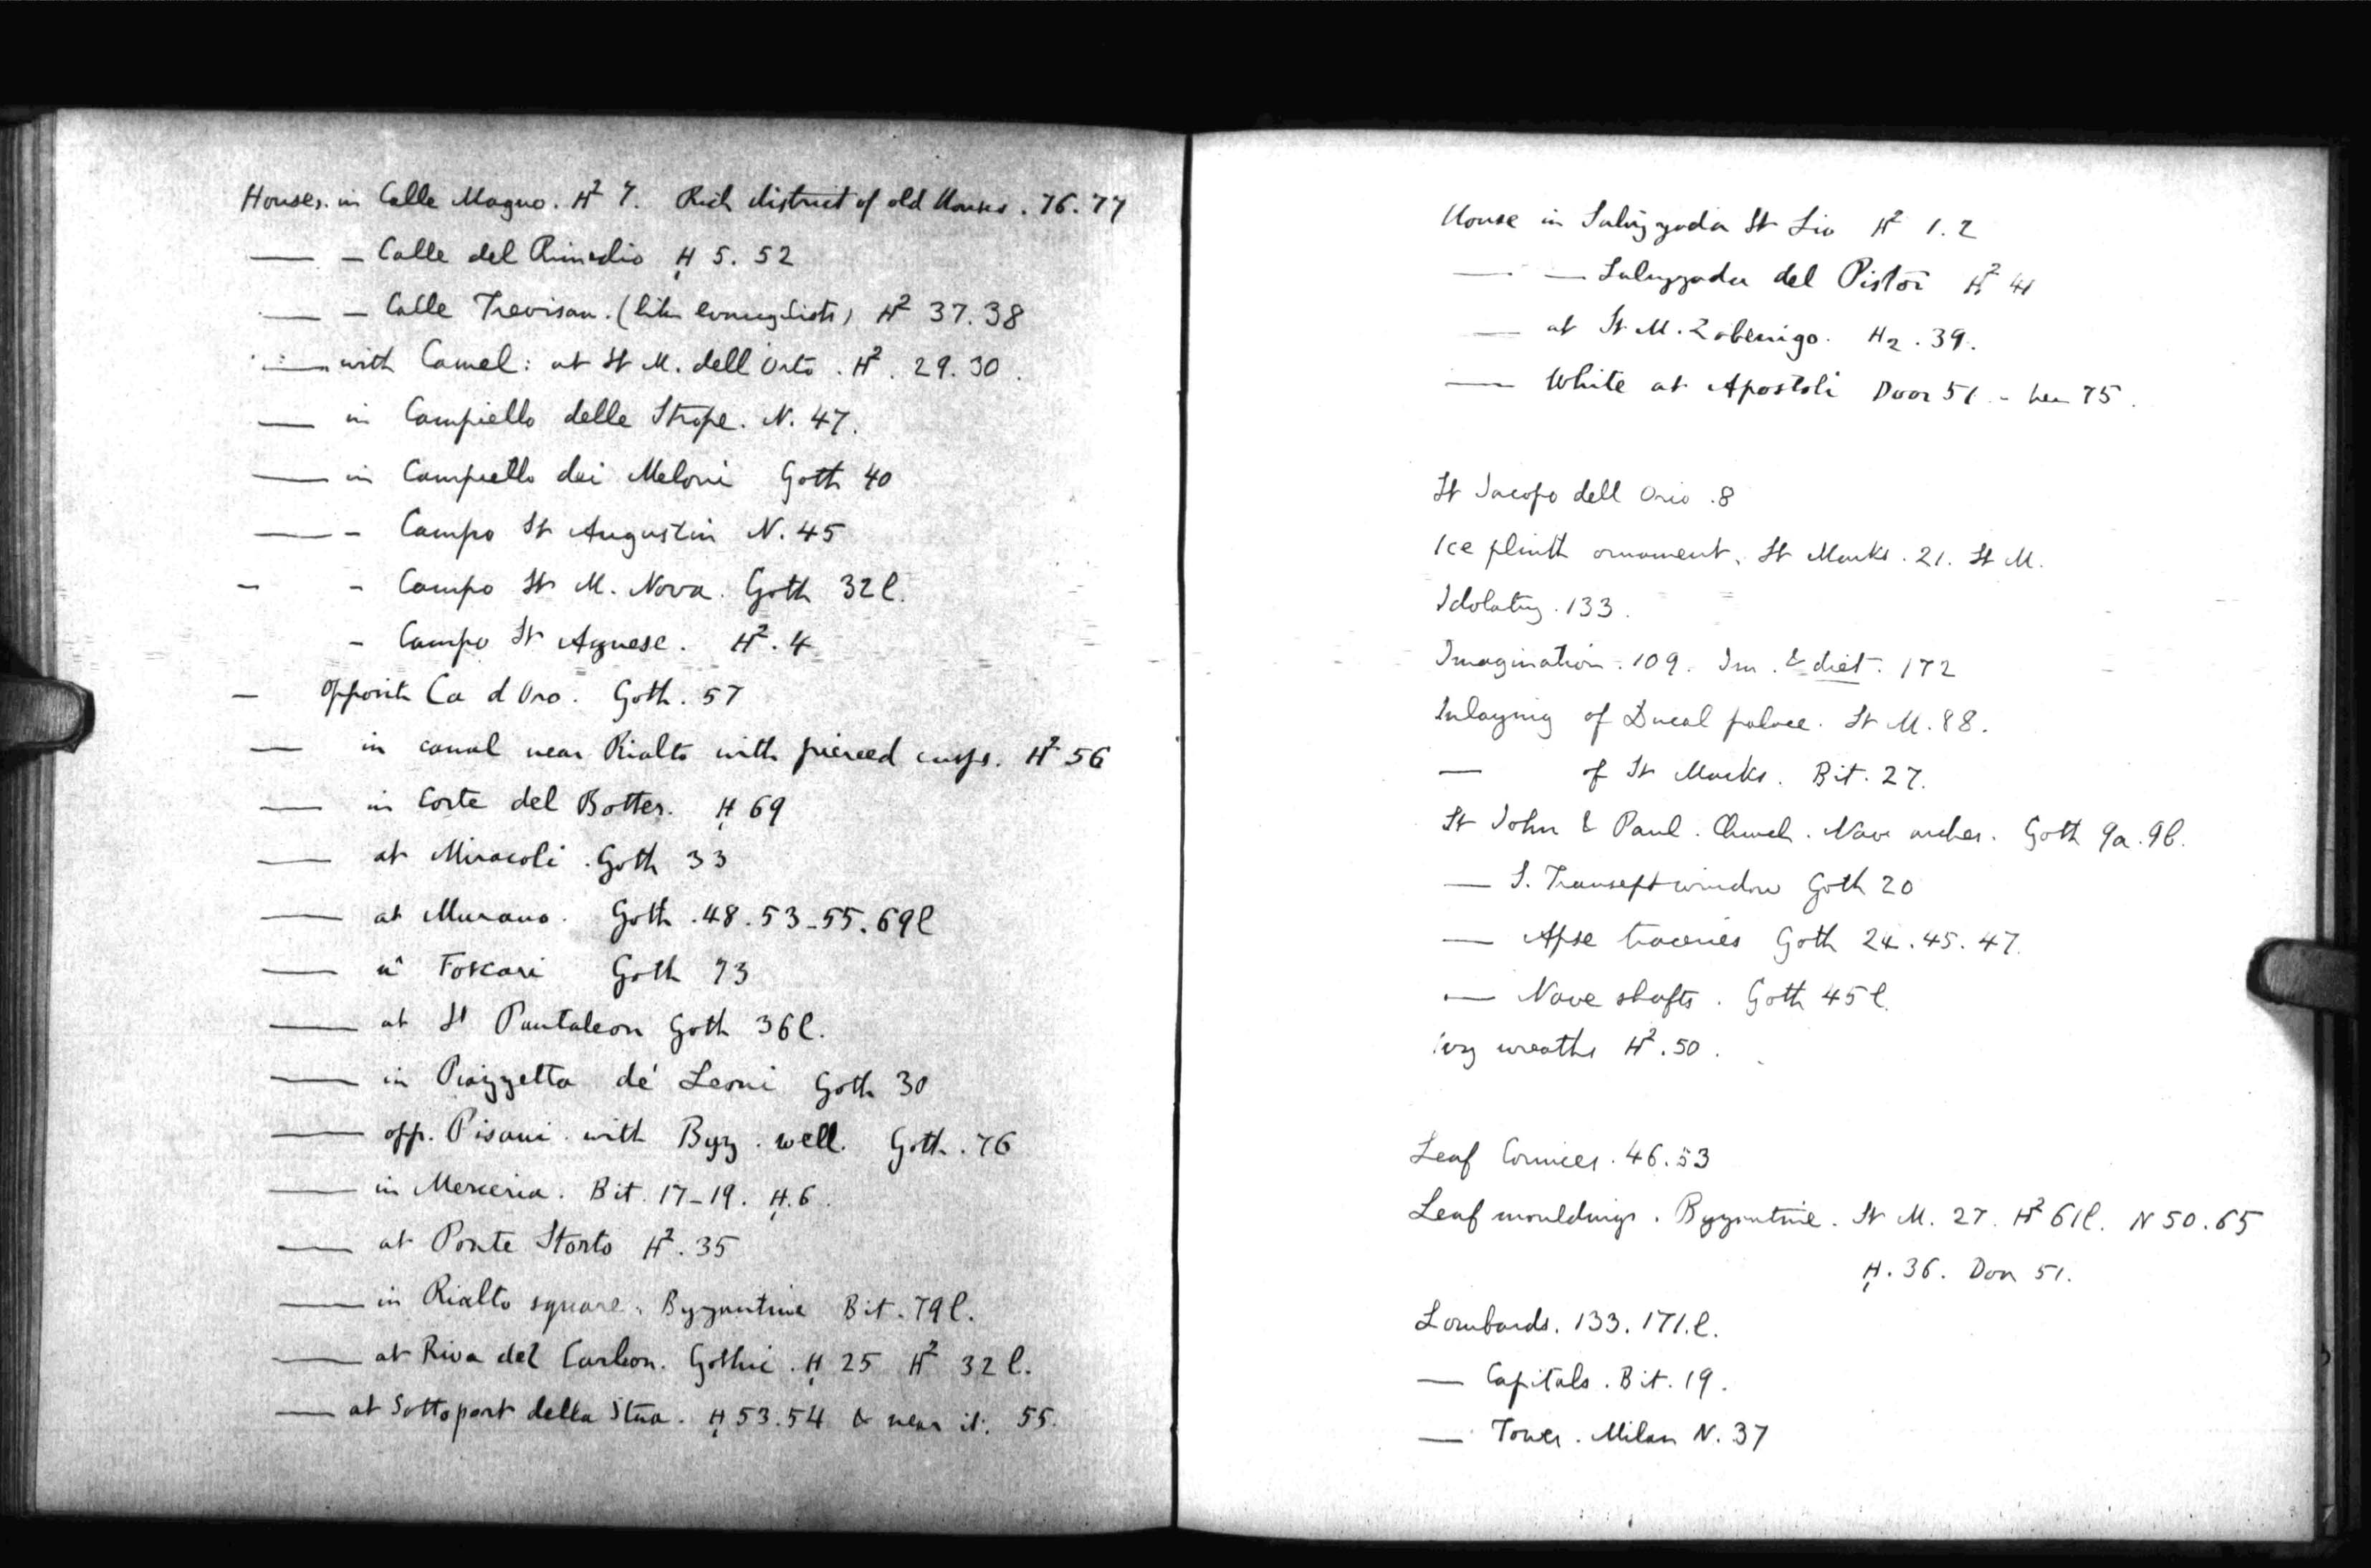 Houses. in Calle Magno. H2 7. Rich district of old Houses. 76. 77
— – Calle del Rimedio H 5. 52
— – Calle Trevisan. (like evangelists) H2 37. 38
— with Camel: at St M. dell Orto. H2. 29. 30.
— in Campiello delle Strope. N. 47.
— in Campiello dei Meloni Goth 40
— – Campo St Augustin N. 45
– – Campo St M. Nova. Goth 32 l.
– Campo St Agnese. H2. 4
– opposite Ca d Oro. Goth. 57
— in canal near Rialto with pierced cusps. H2 56
— in Corte del Botter. H 69
— at Miracoli. Goth 33
— at Murano. Goth. 48. 53-55. 69l
— Foscari Goth 73
— at St Pantaleon Goth 36l.
— in Piazzetta de' Leoni Goth 30
— opp. Pisani. with Byz. well. Goth. 76
— in Merceria. Bit. 17-19. H. 6.
— at Ponte Storto H2. 35
— in Rialto square. Byzantine Bit. 79l.
— at Riva del Carbon. Gothic. H 25 H2 32 l.
— at Sottoport della Stua. H 53. 54 & near it. 55.
House in Salizzada St Lio H2 1. 2
— — Salizzada del Pistor H2 41
— at St M. Zobenigo. H2. 39.
— White at Apostoli Door 51. - 75.
St Jacopo dell Orio. 8
Ice plinth ornament. St Marks. 21. St M.
Idolatry. 133.
Imagination. 109. Im. & diet. 172
Inlaying of Ducal palace. St M. 88.
— of St Marks. Bit. 27.
St John & Paul. Church. Nave arches. Goth 9a. 9l.
— S. Transept window Goth 20
— Apse traceries Goth 24. 45. 47.
— Nave shafts. Goth 45 l.
ivy wreaths H2. 50.
Leaf Cornices. 46. 53
Leaf mouldings. Byzantine. St M. 27. H2 61l. N 50. 65
H. 36. Door 51.
Lombards. 133. 171. l.
— Capitals. Bit. 19.
— Tower. Milan N. 37